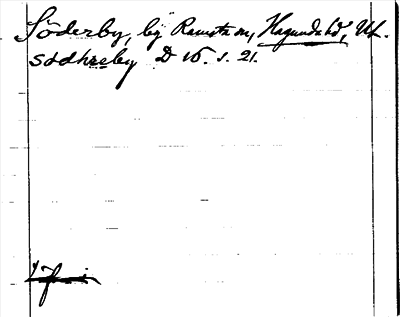 Söderby, by Ramsta sn, Hagunda hd, Upl.
södhreby D 16. s. 21.